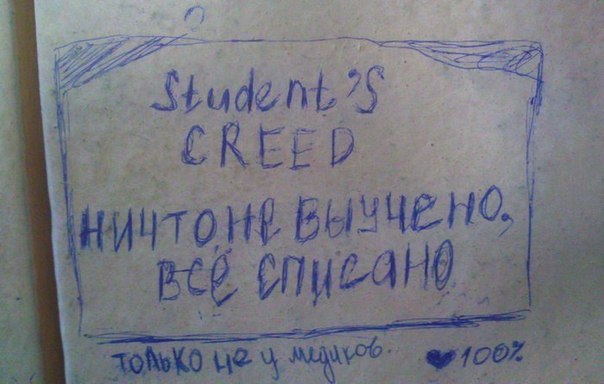 Student's
CREED
НИЧТО НЕ ВЫУЧЕНО,
ВСЁ СПИСАНО
ТОЛЬКО не у медиков.. ♥100%